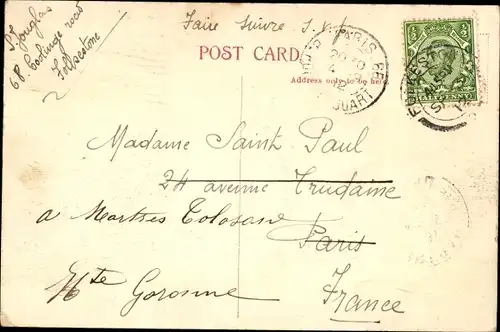 J. Douglas
68. Coolinge road
Folkestone
Faire Suivre S.V.P.
POST CARD
Address only to be here.
PARIS
Madame Saint Paul
24 avenue Trudaine
a Martres Tolosane
Paris
Hte Garonne
France